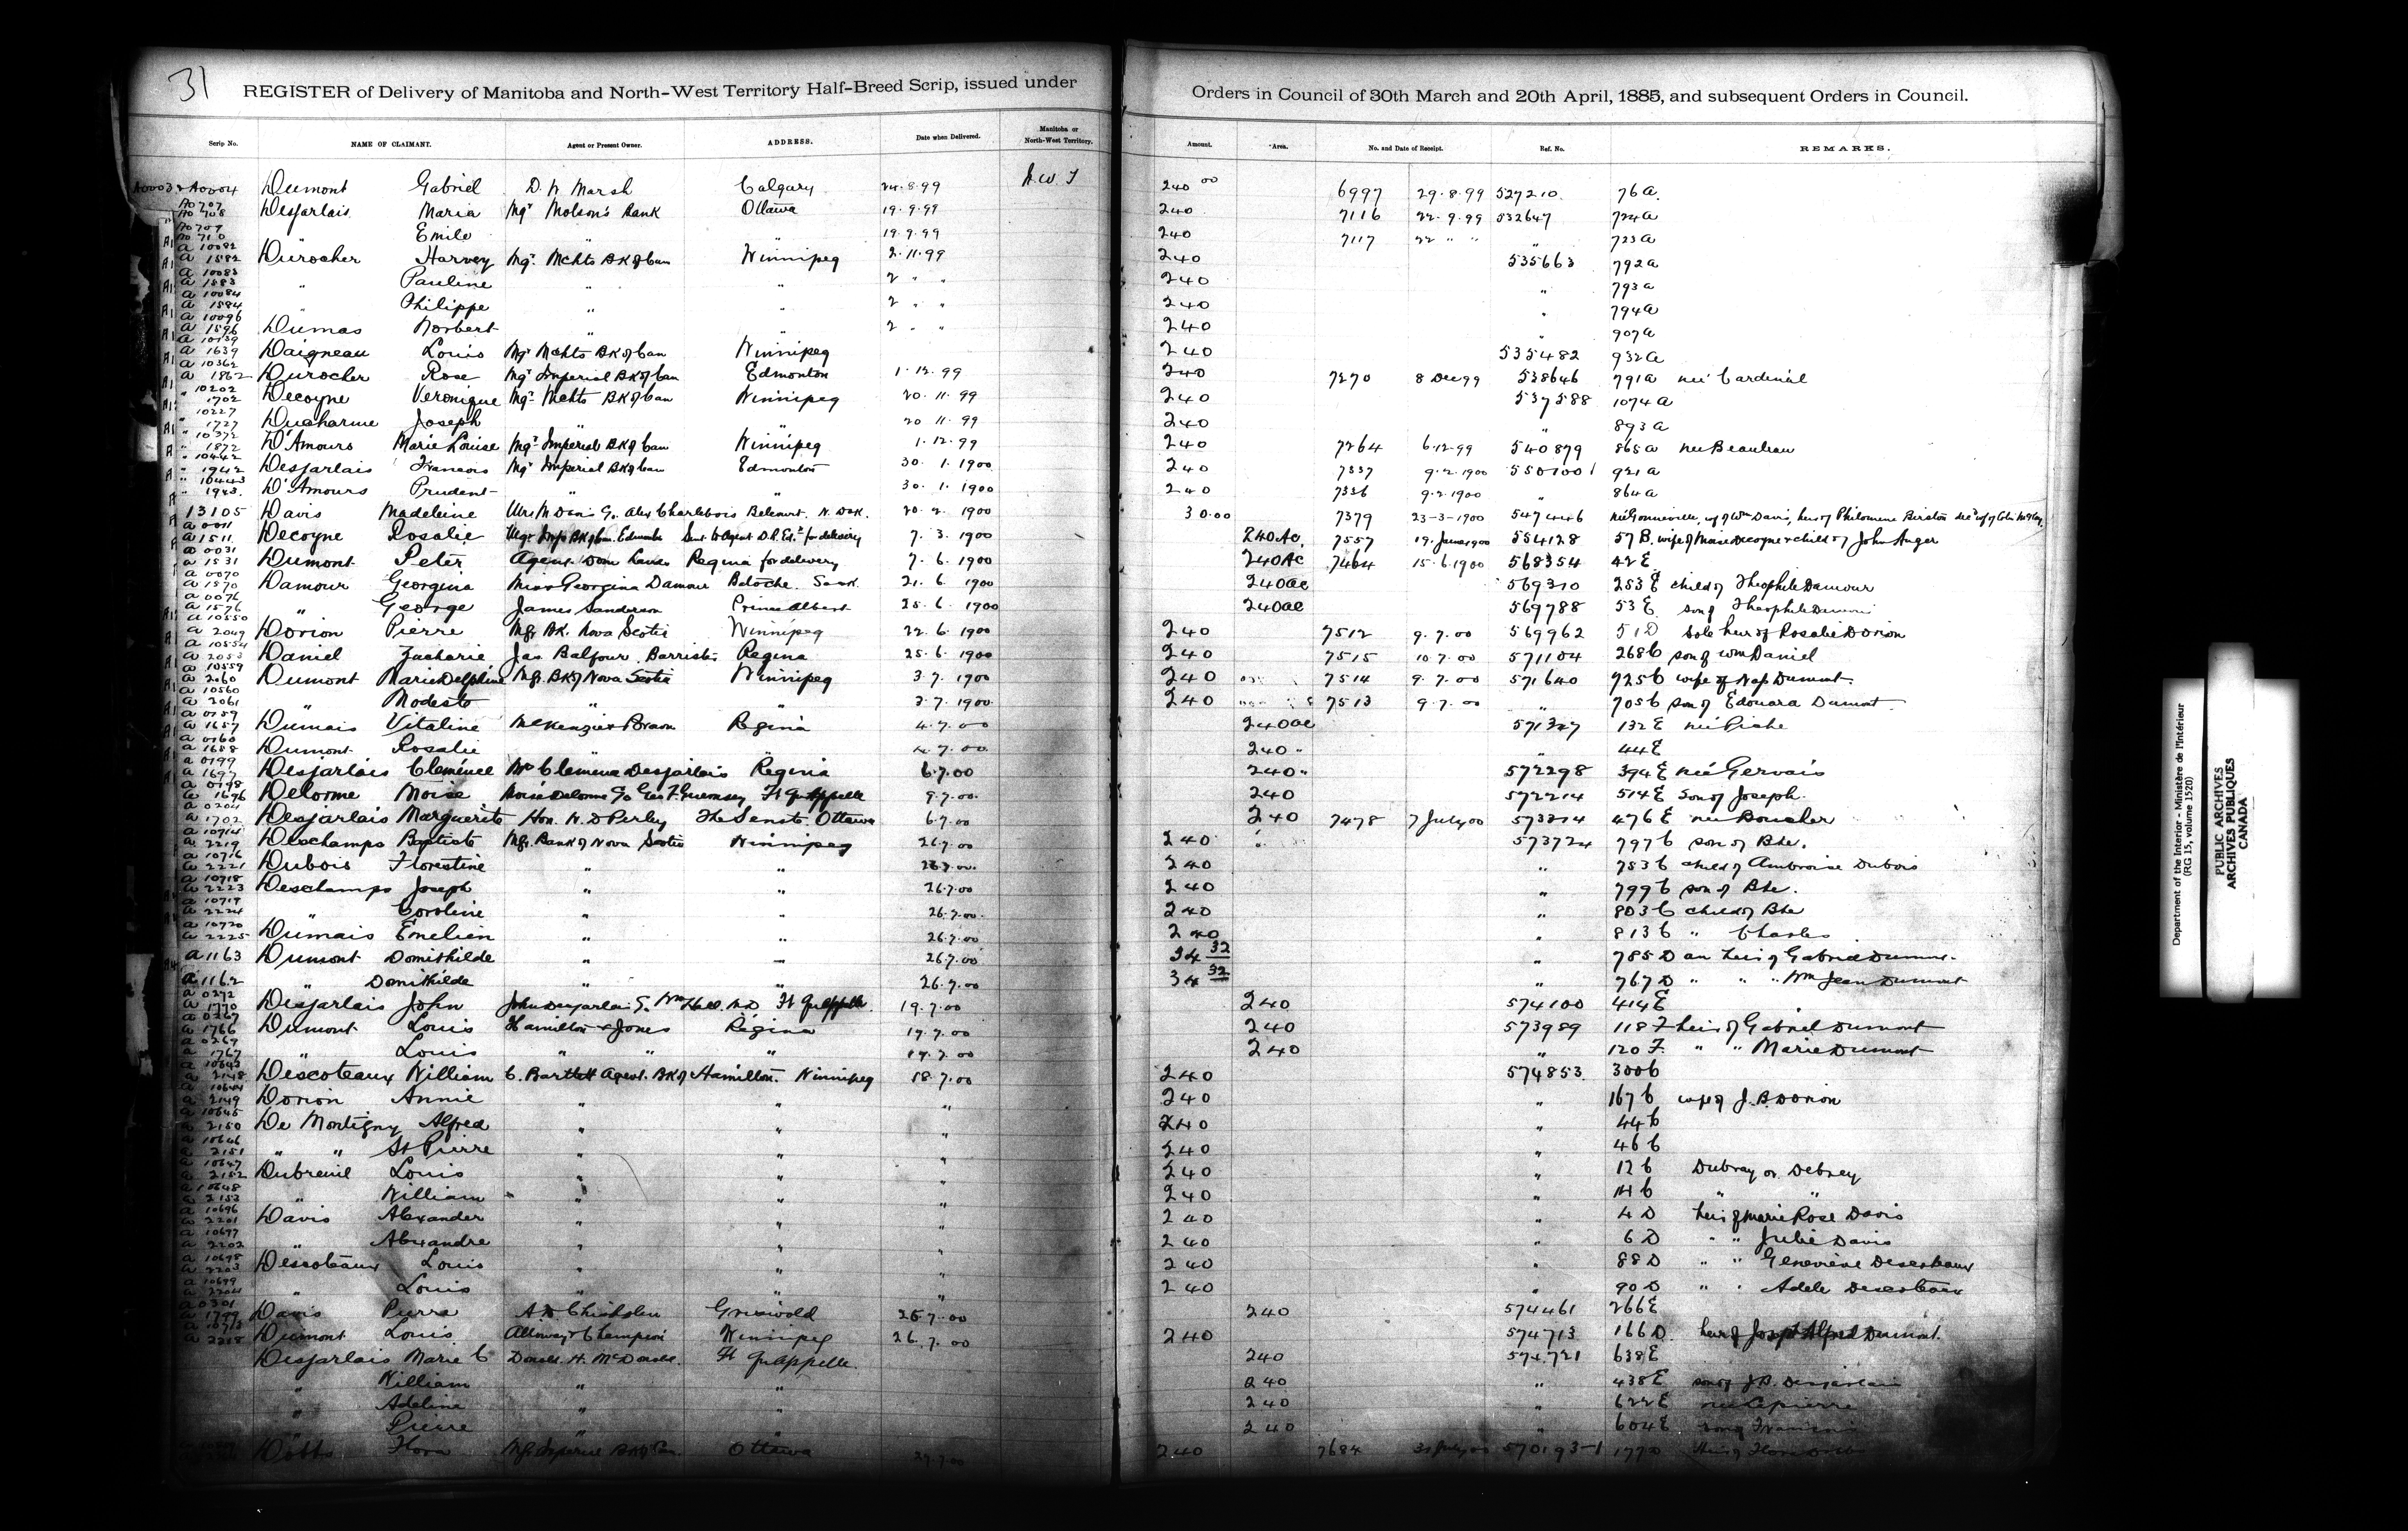 31
REGISTER of Delivery of Manitoba and North-West Territory Half-Breed Scrip, issued under Orders in Council of 30th March and 20th April, 1885, and subsequent Orders in Council.
Scrip No. NAME OF CLAIMANT. Agent or Present Owner. ADDRESS. Date when Delivered. Manitoba or North-West Territory. Amount. Area. No. and Date of Receipt. Ref. No. REMARKS.
A0003 & A0004 Dumont Gabriel D. W. Marsh Calgary 24.8.99 N.W.T 240 00 6997 29.8.99 527210 76a.
Desjarlais Maria Mgr Molson's Bank Ottawa 19.9.99 240 7116 22.9.99 532647 724a
Emile " " 19.9.99 240 7117 22 " " " 723a
a 10082 a 1582 Durocher Harvey Mgr. Mchts BK of Can Winnipeg 2.11.99 240 535663 792a
a 10083 a 1583 " Pauline " " 2 " " 240 " 793a
a 10084 a 1584 " Philippe " " 2 " " 240 " 794a
a 10096 a 1596 Dumas Norbert " " 2 " " 240 " 907a
a 10139 a 1639 Daigneau Louis Mgr Mchts BK of Can Winnipeg 240 535482 932a
a 10362 a 1862 Durocher Rose Mgr Imperial BK of Can Edmonton 1.12.99 240 7270 8 Dec 99 538646 791a née Cardinal
" 10202 " 1702 Decoyne Veronique Mgr Mchts BK of Can Winnipeg 20.11.99 240 537588 1074a
" 10227 " 1727 Ducharme Joseph " " 20 11.99 240 " 893a
" 10372 " 1872 D'Amours Marie Louise Mgr Imperial BK of Can Winnipeg 1.12.99 240 7264 6.12.99 540879 865a née Beaulieau
" 10442 " 1942 Desjarlais Francois Mgr Imperial BK of Can Edmonton 30.1.1900 240 7337 9.2.1900 550100 921a
" 10443 " 1943 D'Amours Prudent " " 30.1.1900 240 7336 9.2.1900 " 864a
13105 Davis Madeleine Mrs M Davis c/o Alex Charlebois Belcourt N. Dak. 20.2.1900 30.00 7379 23-3-1900 547446 née Gonneville, wf of Wm Davis, heir of Philomene Birston
a 0011 a 1511 Decoyne Rosalie Mgr Imp BK of Can. Edmonton Sent to Agent D.L. Ed. for delivery 7.3.1900 240 Ac. 7557 19. June 1900 554128 57 B. wife of Moise Decoyne & child of John Auger
a 0031 a 1531 Dumont Peter Agent Dom Lands Regina for delivery 7.6.1900 240 Ac 7464 15.6.1900 568354 42 E
a 0070 a 1570 Damour Georgina Miss Georgina Damour Batoche. Sask. 21.6.1900 240 ac 569310 253 E child of Theophile Damour
a 0076 a 1576 " George James Sanderson Prince Albert 25.6.1900 240 ac 569788 53 E son of Theophile Damour
a 10550 a 2049 Dorion Pierre Mgr BK. Nova Scotia Winnipeg 22.6.1900 240 7512 9.7.00 569962 51 D Sole heir of Rosalie Dorion
a 10554 a 2053 Daniel Zacharie Jas Balfour Barrister Regina 25.6.1900 240 7515 10.7.00 571104 268 C son of Wm Daniel
a 10559 a 2060 Dumont Marie Delphine Mgr. BK of Nova Scotia Winnipeg 3.7.1900 240 7514 9.7.00 571640 725 C wife of Nap Dumont
a 10560 a 2061 " Modeste " " 3.7.1900 240 7513 9.7.00 " 705 C son of Edouard Dumont
a 0159 a 1657 Dumais Vitaline McKenzie & Brown Regina 4.7.00 240 ac 571327 132 E née Piche
a 0160 a 1658 Dumont Rosalie " " 4.7.00 240 " " 44 E
a 0199 a 1697 Desjarlais Clemence Mrs Clemence Desjarlais Regina 6.7.00 240 " 572298 394 E née Gervais
a 0198 a 1696 Delorme Moise Moise Delorme c/o Geo F. Guernsey Ft Qu'Appelle 9.7.00 240 572214 514 E Son of Joseph
a 0204 a 1702 Desjarlais Marguerite Hon. W. D Perley The Senate Ottawa 6.7.00 240 7478 7 July 00 476 E née Boucher
a 10714 a 2219 Deschamps Baptiste Mgr. Bank of Nova Scotia Winnipeg 26.7.00 240 573724 797 C son of Bte.
a 10716 a 2221 Dubois Florestine " " 26.7.00 240 " 753 C child of Ambroise Dubois
a 10718 a 2223 Deschamps Joseph " " 26.7.00 240 " 799 C son of Bte.
a 10719 a 2224 " Caroline " " 26.7.00 240 " 803 C child of Bte
a 10720 a 2225 Dumais Emelien " " 26.7.00 240 " 813 C " Charles
a 1163 Dumont Domithilde " " 26.7.00 34 32 " 785 D an heir of Gabriel Dumont
a 1162 " Domithilde " " 26.7.00 34 32 " 767 D " " " Wm Jean Dumont
a 0272 a 1770 Desjarlais John John Desjarlais c/o Wm Hall M.D Ft Qu'Appelle 19.7.00 240 574100 414 E
a 0267 a 1766 Dumont Louis Hamilton & Jones Regina 19.7.00 240 573989 118 F heir of Gabriel Dumont
a 0269 a 1767 " Louis " " " 19.7.00 240 " 120 F. " " Marie Dumont
a 10643 a 2148 Descoteaux William C. Bartlett Agent. BK of Hamilton. Winnipeg 18.7.00 240 574853 300 C
a 10644 a 2149 Dorion Annie " " " 240 " 167 C wife of J. B. Dorion
a 10645 a 2150 De Montigny Alfred " " " 240 " 44 C
a 10646 a 2151 " " St Pierre " " " 240 " 46 C
a 10647 a 2152 Dubreuil Louis " " " 240 " 12 C Dubray or Debray
a 10648 a 2153 " William " " " 240 " 14 C " "
a 10696 a 2201 Davis Alexander " " " 240 " 4 D heir of Marie Rose Davis
a 10697 a 2202 " Alexandre " " " 240 " 6 D " " Julie Davis
a 10698 a 2203 Descoteaux Louis " " " 240 " 88 D " " Genevieve Descoteaux
a 10699 a 2204 " Louis " " " 240 " 90 D " " Adele Descoteaux
a 0301 a 1799 Davis Pierre A. D Chisholm Griswold 25.7.00 240 574461 266 E
a 10713 a 2218 Dumont Louis Alloway & Champion Winnipeg 26.7.00 240 574713 166 D. heir of Joseph Alfred Dumont.
Desjarlais Marie C Donald H. McDonald. Ft Qu'Appelle. 240 574721 638 E
" William " " 240 " 438 E son of J. B. Desjarlais
" Adeline " " 240 622 E née Lapierre
" Pierre " " 240 " 604 E son of Francois
Hobbs Flora Mgr Imperial BK of Can. Ottawa 27.7.00 240 7684 31 July 00 570193-1 177 D
Department of the Interior - Ministère de l'Intérieur
(RG 15, volume 1520)
PUBLIC ARCHIVES
ARCHIVES PUBLIQUES
CANADA